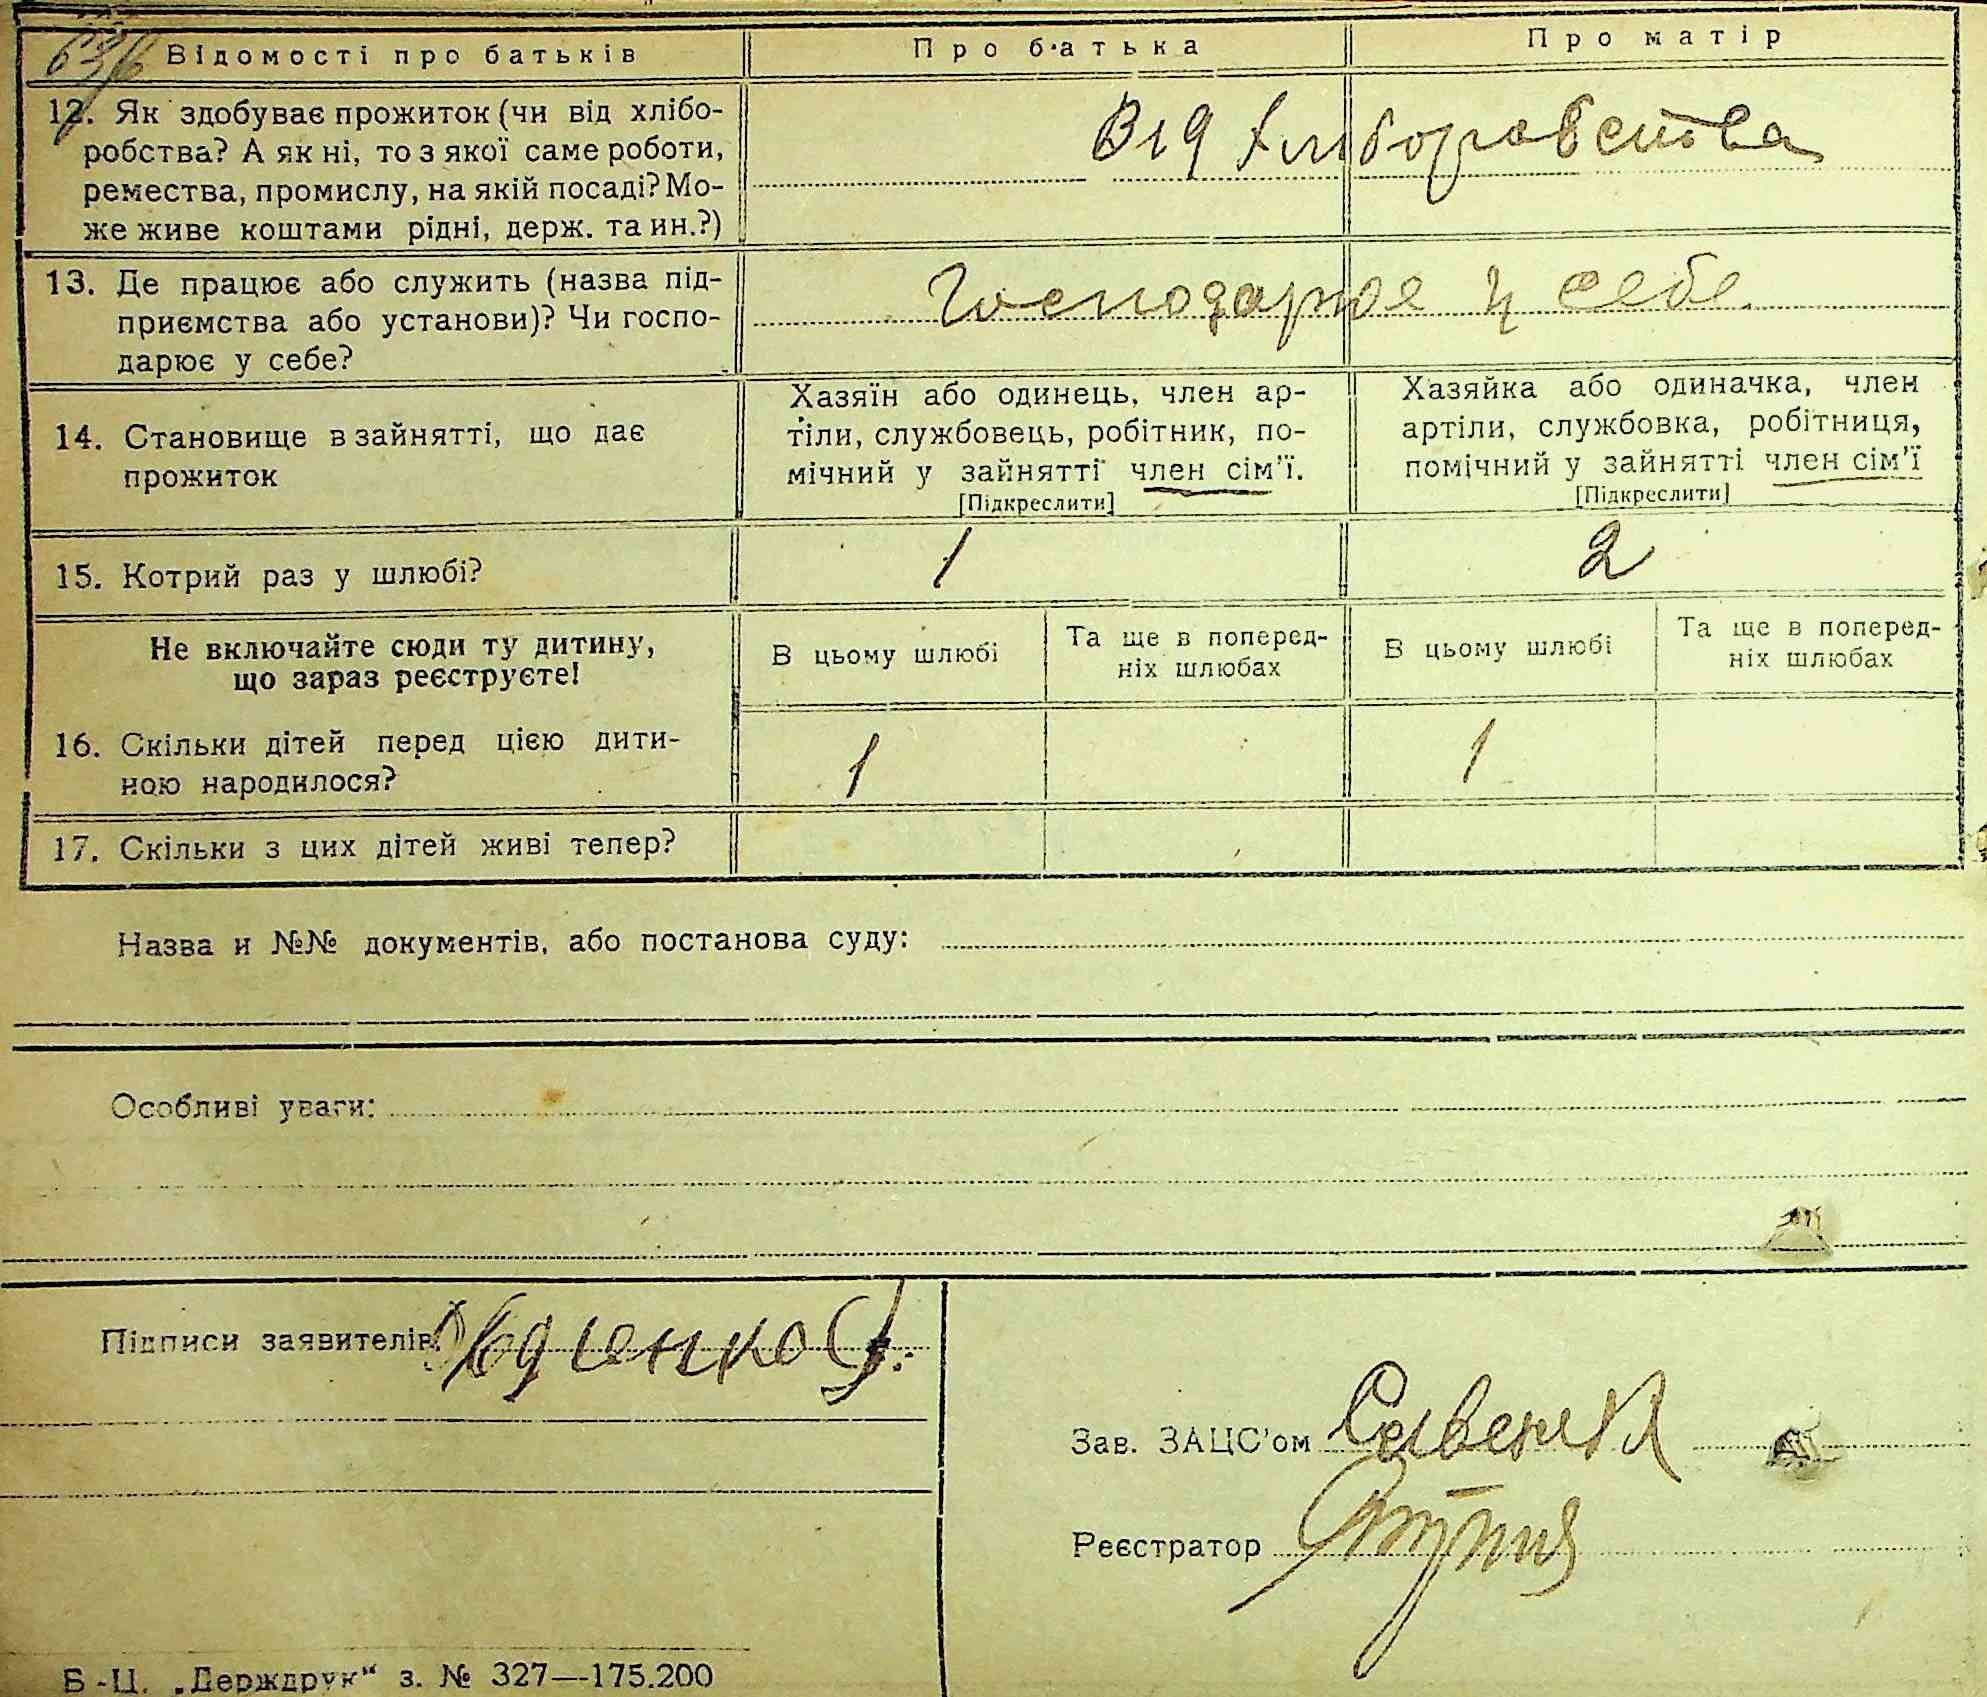 63/6
Відомості про батьків
Про батька
Про матір
12. Як здобуває прожиток (чи від хлібо-
робства? А як ні, то з якої саме роботи,
ремества, промислу, на якій посаді? Мо-
же живе коштами рідні, держ. та ин.?)
Від хліборобства
13. Де працює або служить (назва під-
приємства або установи)? Чи госпо-
дарює у себе?
Господарює у себе
14. Становище в зайнятті, що дає
прожиток
Хазяїн або одинець, член ар-
тіли, службовець, робітник, по-
мічний у зайнятті член сім'ї.
[Підкреслити]
Хазяйка або одиначка, член
артіли, службовка, робітниця,
помічний у зайнятті член сім'ї
[Підкреслити]
15. Котрий раз у шлюбі?
1
2
Не включайте сюди ту дитину,
що зараз реєструєте!
В цьому шлюбі
Та ще в поперед-
ніх шлюбах
В цьому шлюбі
Та ще в поперед-
ніх шлюбах
16. Скільки дітей перед цією дити-
ною народилося?
1
1
17. Скільки з цих дітей живі тепер?
Назва и №№ документів, або постанова суду:
Особливі уваги:
Підписи заявителів:
Зав. ЗАЦС'ом
Реєстратор
Б-Ц. „Держдрук“ з. № 327—175.200